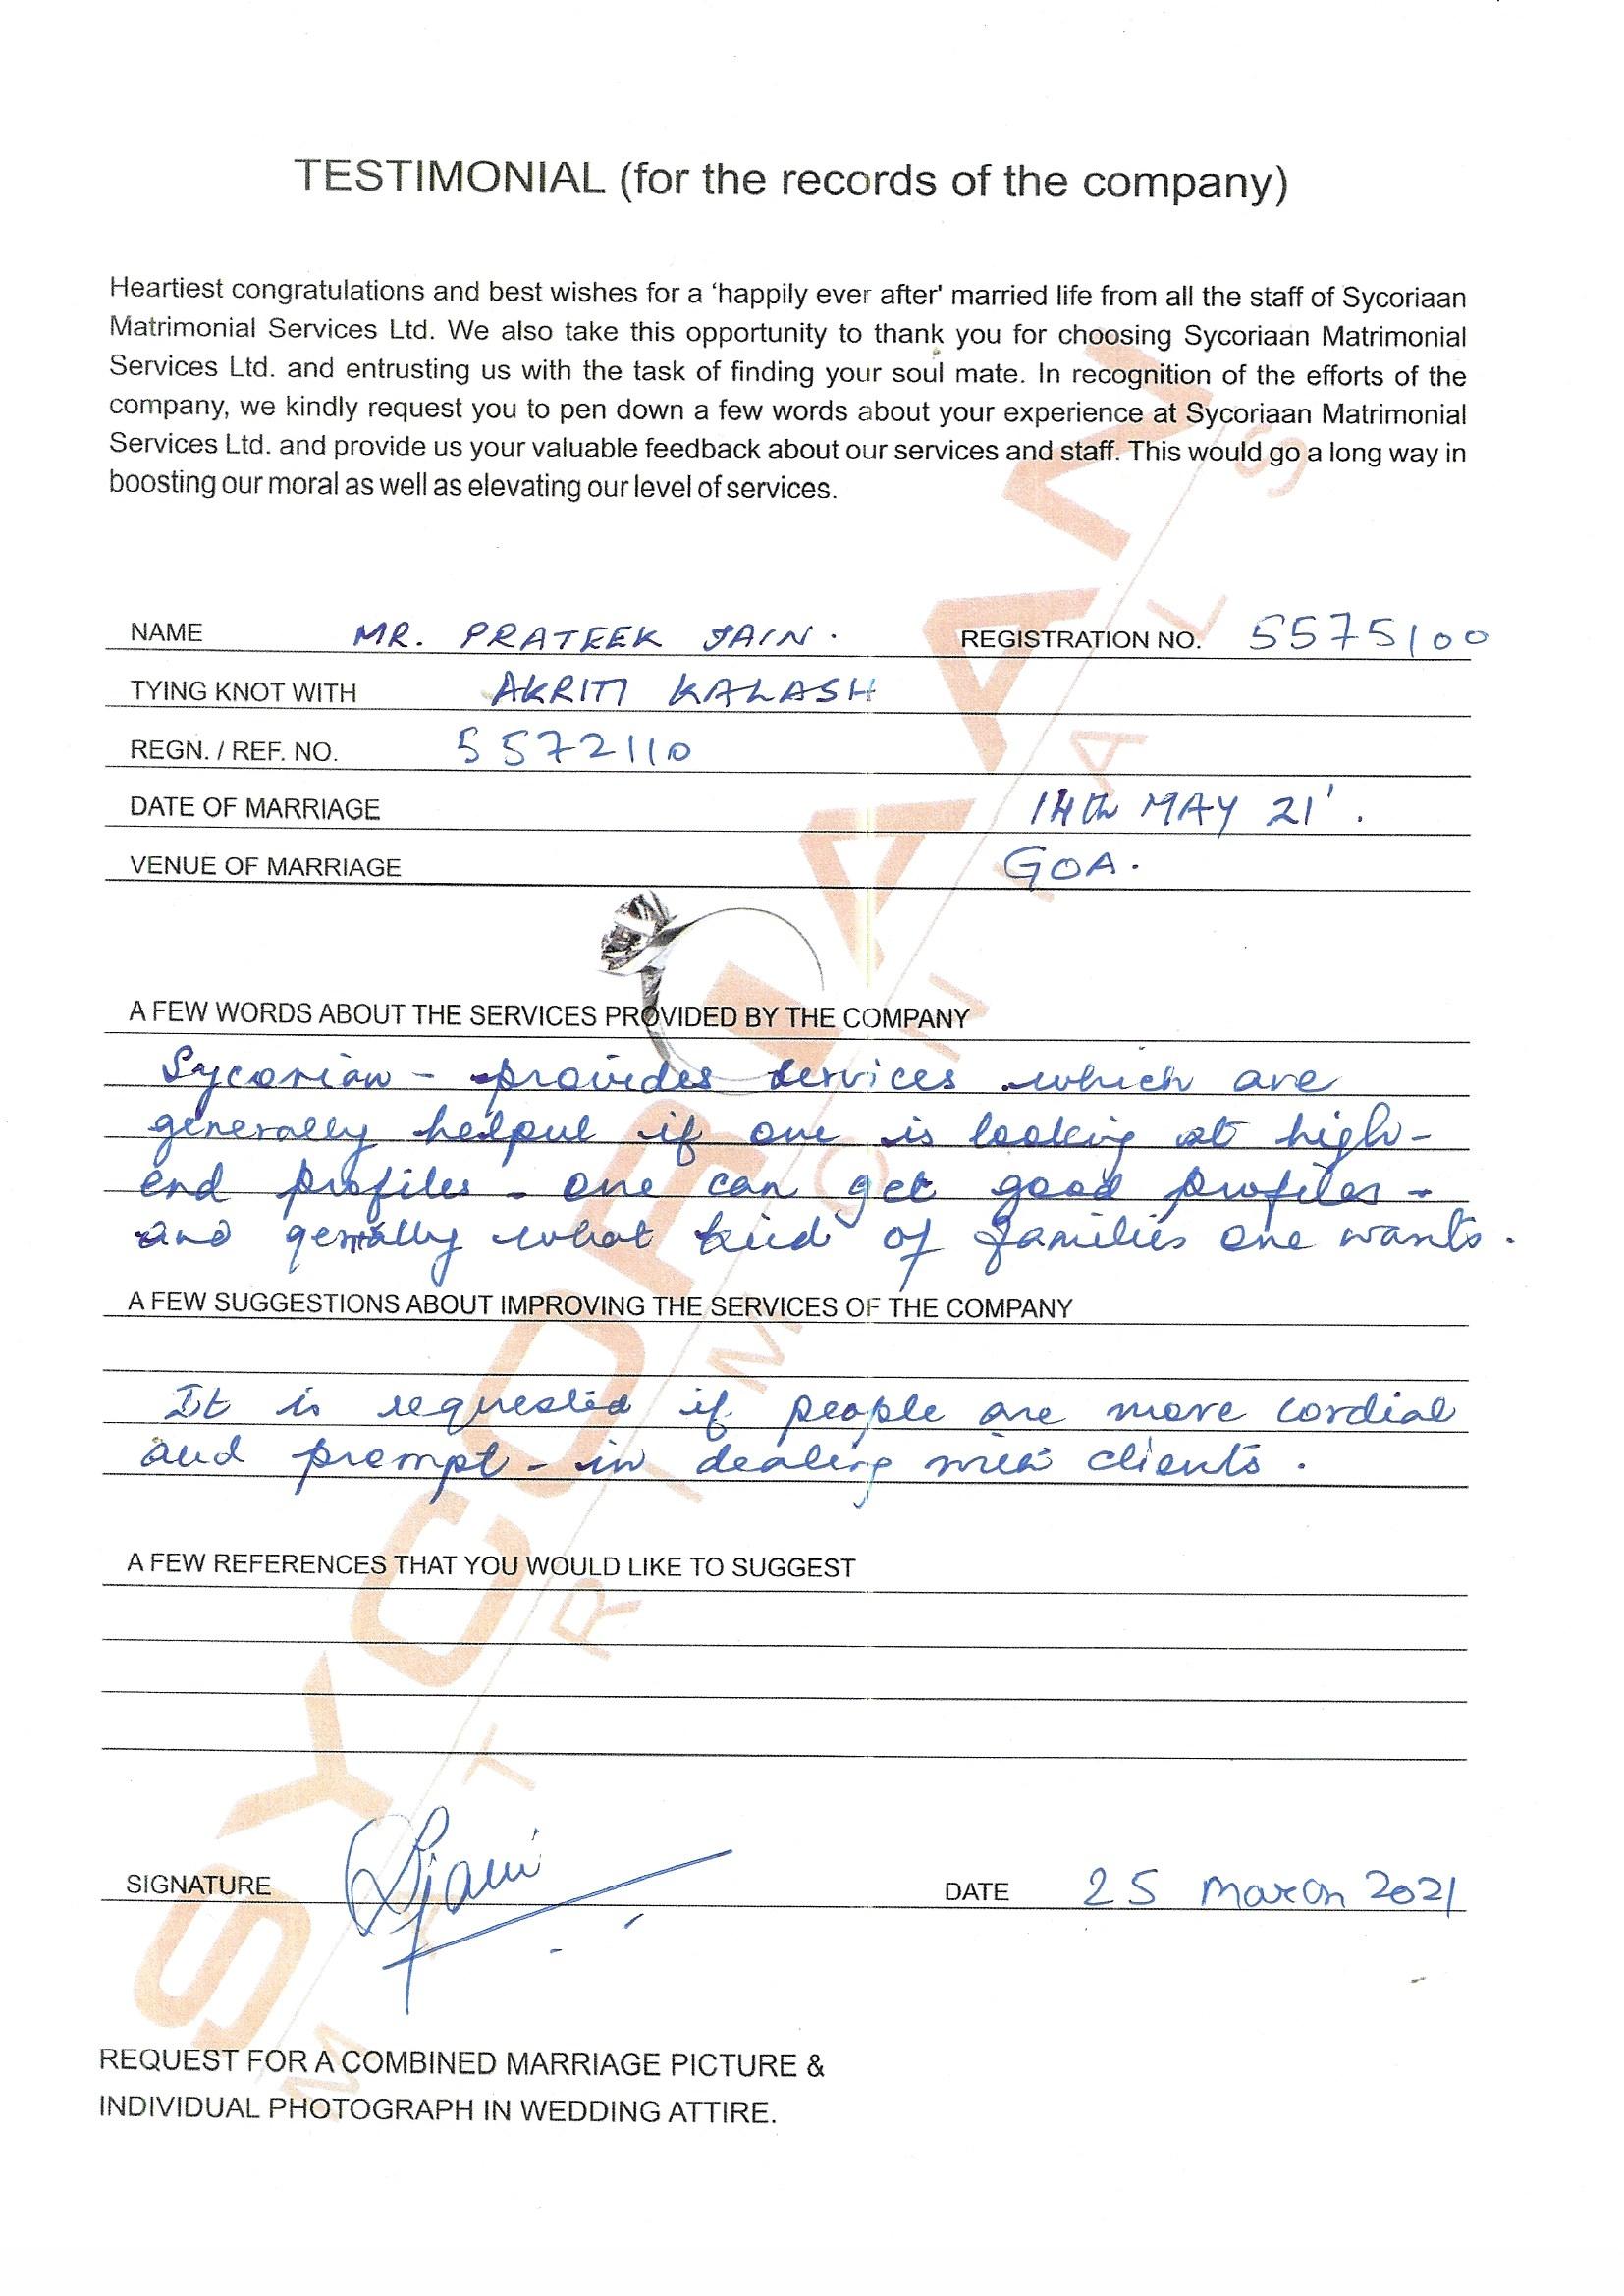 TESTIMONIAL (for the records of the company)
Heartiest congratulations and best wishes for a ‘happily ever after' married life from all the staff of Sycoriaan
Matrimonial Services Ltd. We also take this opportunity to thank you for choosing Sycoriaan Matrimonial
Services Ltd. and entrusting us with the task of finding your soul mate. In recognition of the efforts of the
company, we kindly request you to pen down a few words about your experience at Sycoriaan Matrimonial
Services Ltd. and provide us your valuable feedback about our services and staff. This would go a long way in
boosting our moral as well as elevating our level of services.
NAME MR. PRATEEK JAIN. REGISTRATION NO. 5575100
TYING KNOT WITH AKRITI KALASH
REGN. / REF. NO. 5572110
DATE OF MARRIAGE 14th MAY 21'.
VENUE OF MARRIAGE GOA.
A FEW WORDS ABOUT THE SERVICES PROVIDED BY THE COMPANY
Sycorian - provides services which are
generally helpul if one is looking at high-
end profiles - one can get good profiles -
and generally what kind of families one wants.
A FEW SUGGESTIONS ABOUT IMPROVING THE SERVICES OF THE COMPANY
It is requested if people are more cordial
and prompt - in dealing with clients.
A FEW REFERENCES THAT YOU WOULD LIKE TO SUGGEST
SIGNATURE PJain DATE 25 March 2021
REQUEST FOR A COMBINED MARRIAGE PICTURE &
INDIVIDUAL PHOTOGRAPH IN WEDDING ATTIRE.
SYCORIAAN
MATRIMONIALS